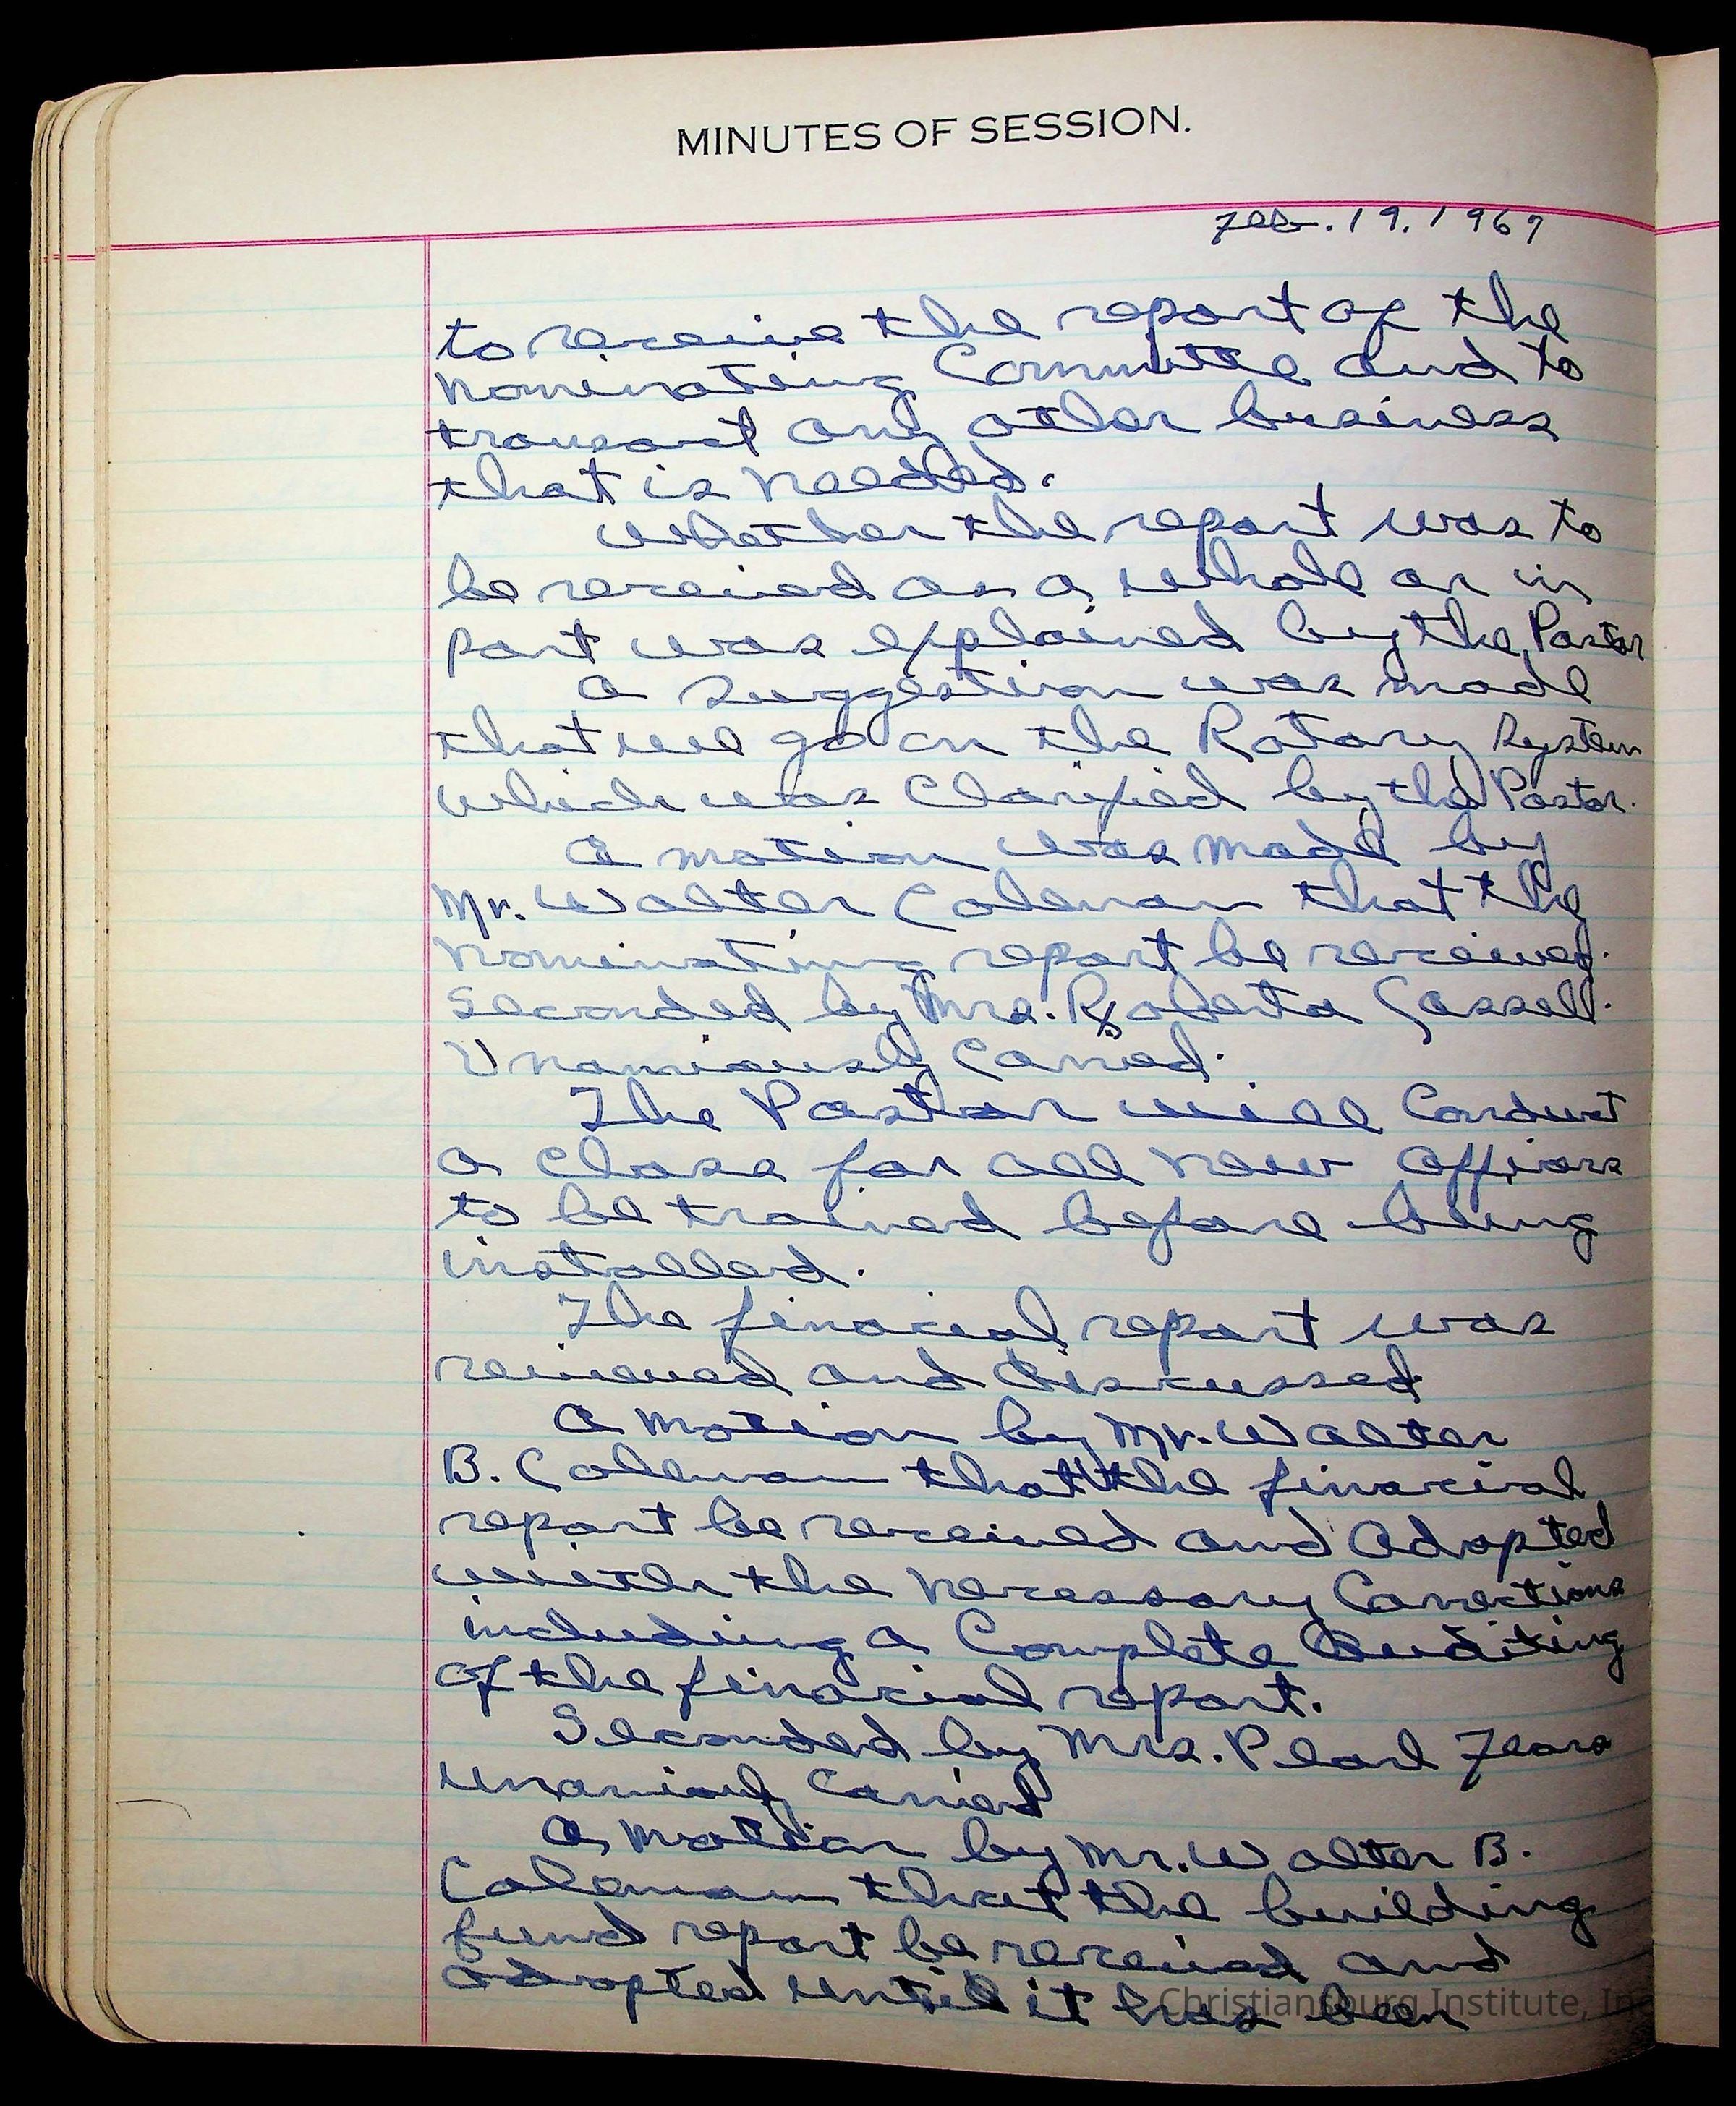 MINUTES OF SESSION.
Feb. 19. 1967
to receive the report of the
nominating Committe and to
transact any other business
that is needed.
Whether the report was to
be received as a whole or in
part was explained by the Pastor
A suggestion was made
that we go on the Rotary System
which was Clarified by the Pastor.
A motion was made by
Mr. Walter Coleman that the
nominating report be received.
Seconded by Mrs. Roberta Cassell.
Unamiously Carried.
The Pastor will Conduct
a class for all new officers
to be trained before being
installed.
The finacial report was
reviewed and discussed
A motion by Mr. Walter
B. Coleman that the finacial
report be received and Adopted
with the necessary Corrections
including a Complete Auditing
of the finacial report.
Seconded by Mrs. Pearl Fears
Carried
A motion by Mr. Walter B.
Coleman that the building
fund report be received and
adopted until it has been
Christiansburg Institute, Inc